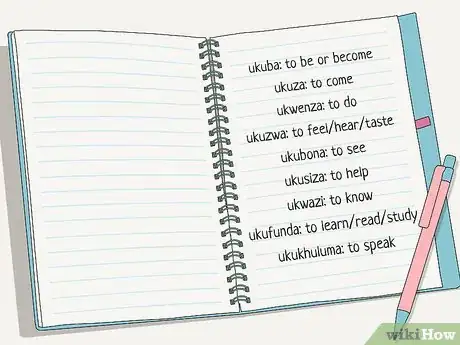 ukuba: to be or become
ukuza: to come
ukwenza: to do
ukuzwa: to feel/hear/taste
ukubona: to see
ukusiza: to help
ukwazi: to know
ukufunda: to learn/read/study
ukukhuluma: to speak
wikiHow